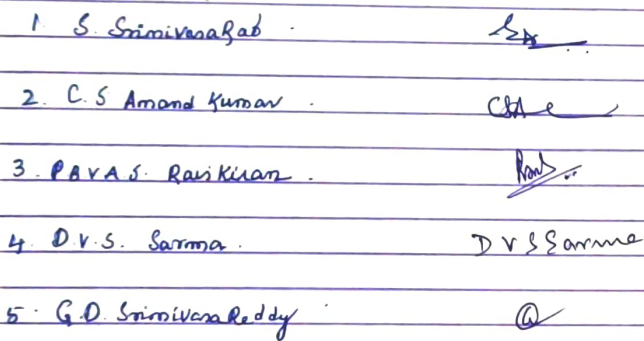 1 S. SrinivasaRao.
2. C.S Anand Kumar.
3. P B V A S. Ravi Kiran.
4. D.V.S. Sarma. D V S Sarma
5. G.D. Srinivasa Reddy